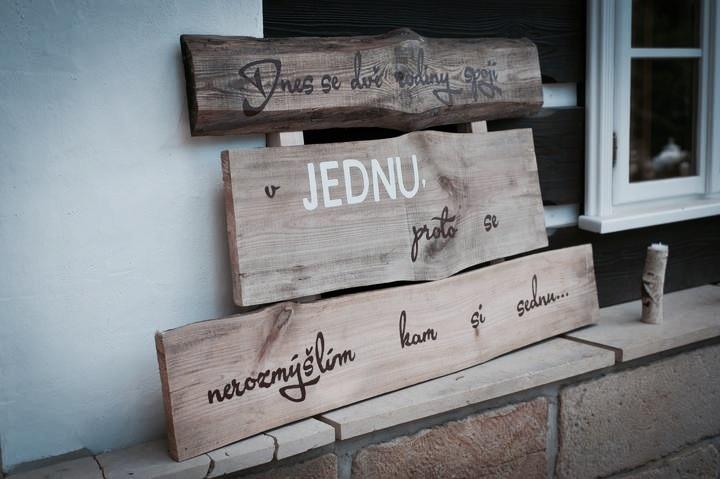 Dnes se dvě rodiny spojí
v JEDNU,
proto se
nerozmýšlím kam si sednu...